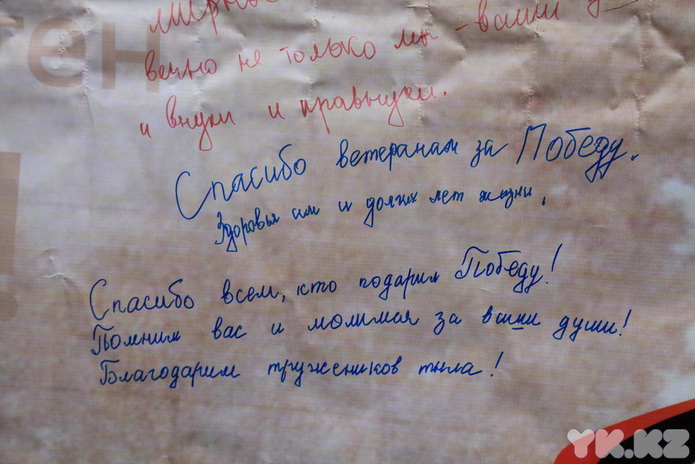 тен
вечно не только мы - ваши
и внуки и правнуки.
Спасибо ветеранам за Победу.
Здоровья им и долгих лет жизни.
Спасибо всем, кто подарил Победу!
Помним вас и молимся за ваши души!
Благодарим тружеников тыла!
YK.KZ